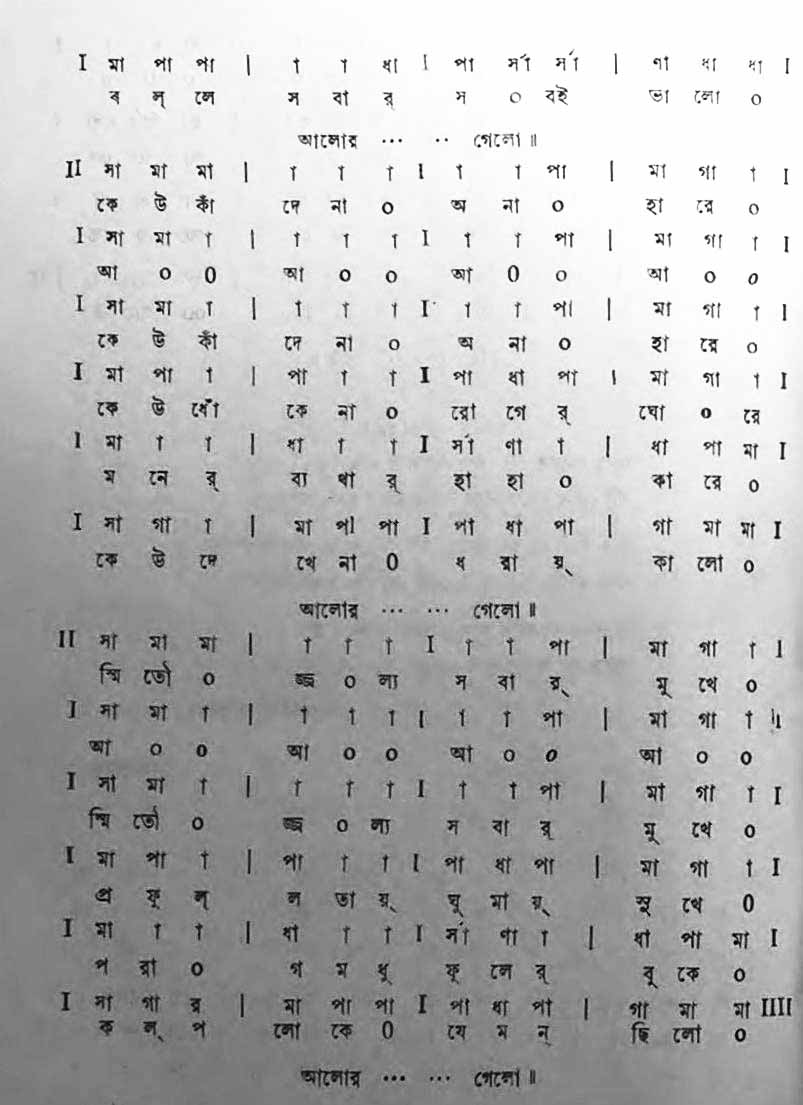 I মা পা পা | া া ধা I পা র্সা র্সা | ণা ধা ধা I
ব ল্ লে স বা র্ স ০ বই ভা লো ০
আলোর ··· ·· গেলো॥
II সা মা মা | া া া I া া পা | মা গা া I
কে উ কাঁ দে না ০ অ না ০ হা রে ০
I সা মা া | া া া I া া পা | মা গা া I
আ ০ ০ আ ০ ০ আ ০ ০ আ ০ ০
I সা মা া | া া া I া া পা | মা গা া I
কে উ কাঁ দে না ০ অ না ০ হা রে ০
I মা পা া | পা া া I পা ধা পা | মা গা া I
কে উ ধোঁ কে না ০ রো গে র্ ঘো ০ রে
I মা া া | ধা া া I র্সা ণা া | ধা পা মা I
ম নে র্ ব্য থা র্ হা হা ০ কা রে ০
I সা গা া | মা পা পা I পা ধা পা | গা মা মা I
কে উ দে খে না ০ ধ রা য়্ কা লো ০
আলোর ··· ··· গেলো॥
II সা মা মা | া া া I া া পা | মা গা া I
স্মি তৌ ০ জ্জ্ব ০ ল্য স বা র্ মু খে ০
I সা মা া | া া া I া া পা | মা গা া I
আ ০ ০ আ ০ ০ আ ০ ০ আ ০ ০
I সা মা া | া া া I া া পা | মা গা া I
স্মি তৌ ০ জ্জ্ব ০ ল্য স বা র্ মু খে ০
I মা পা া | পা া া I পা ধা পা | মা গা া I
প্র ফু ল্ ল তা য়্ ঘু মা য়্ সু খে ০
I মা া া | ধা া া I র্সা ণা া | ধা পা মা I
প রা ০ গ ম ধু ফু লে র্ বু কে ০
I সা গা র | মা পা পা I পা ধা পা | গা মা মা IIII
ক ল্ প লো কে ০ যে ম ন্ ছি লো ০
আলোর ··· ··· গেলো॥